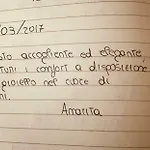 /03/2017
accogliente ed elegante,
i confort a disposizione,
gioiello nel cuore di
Amarita